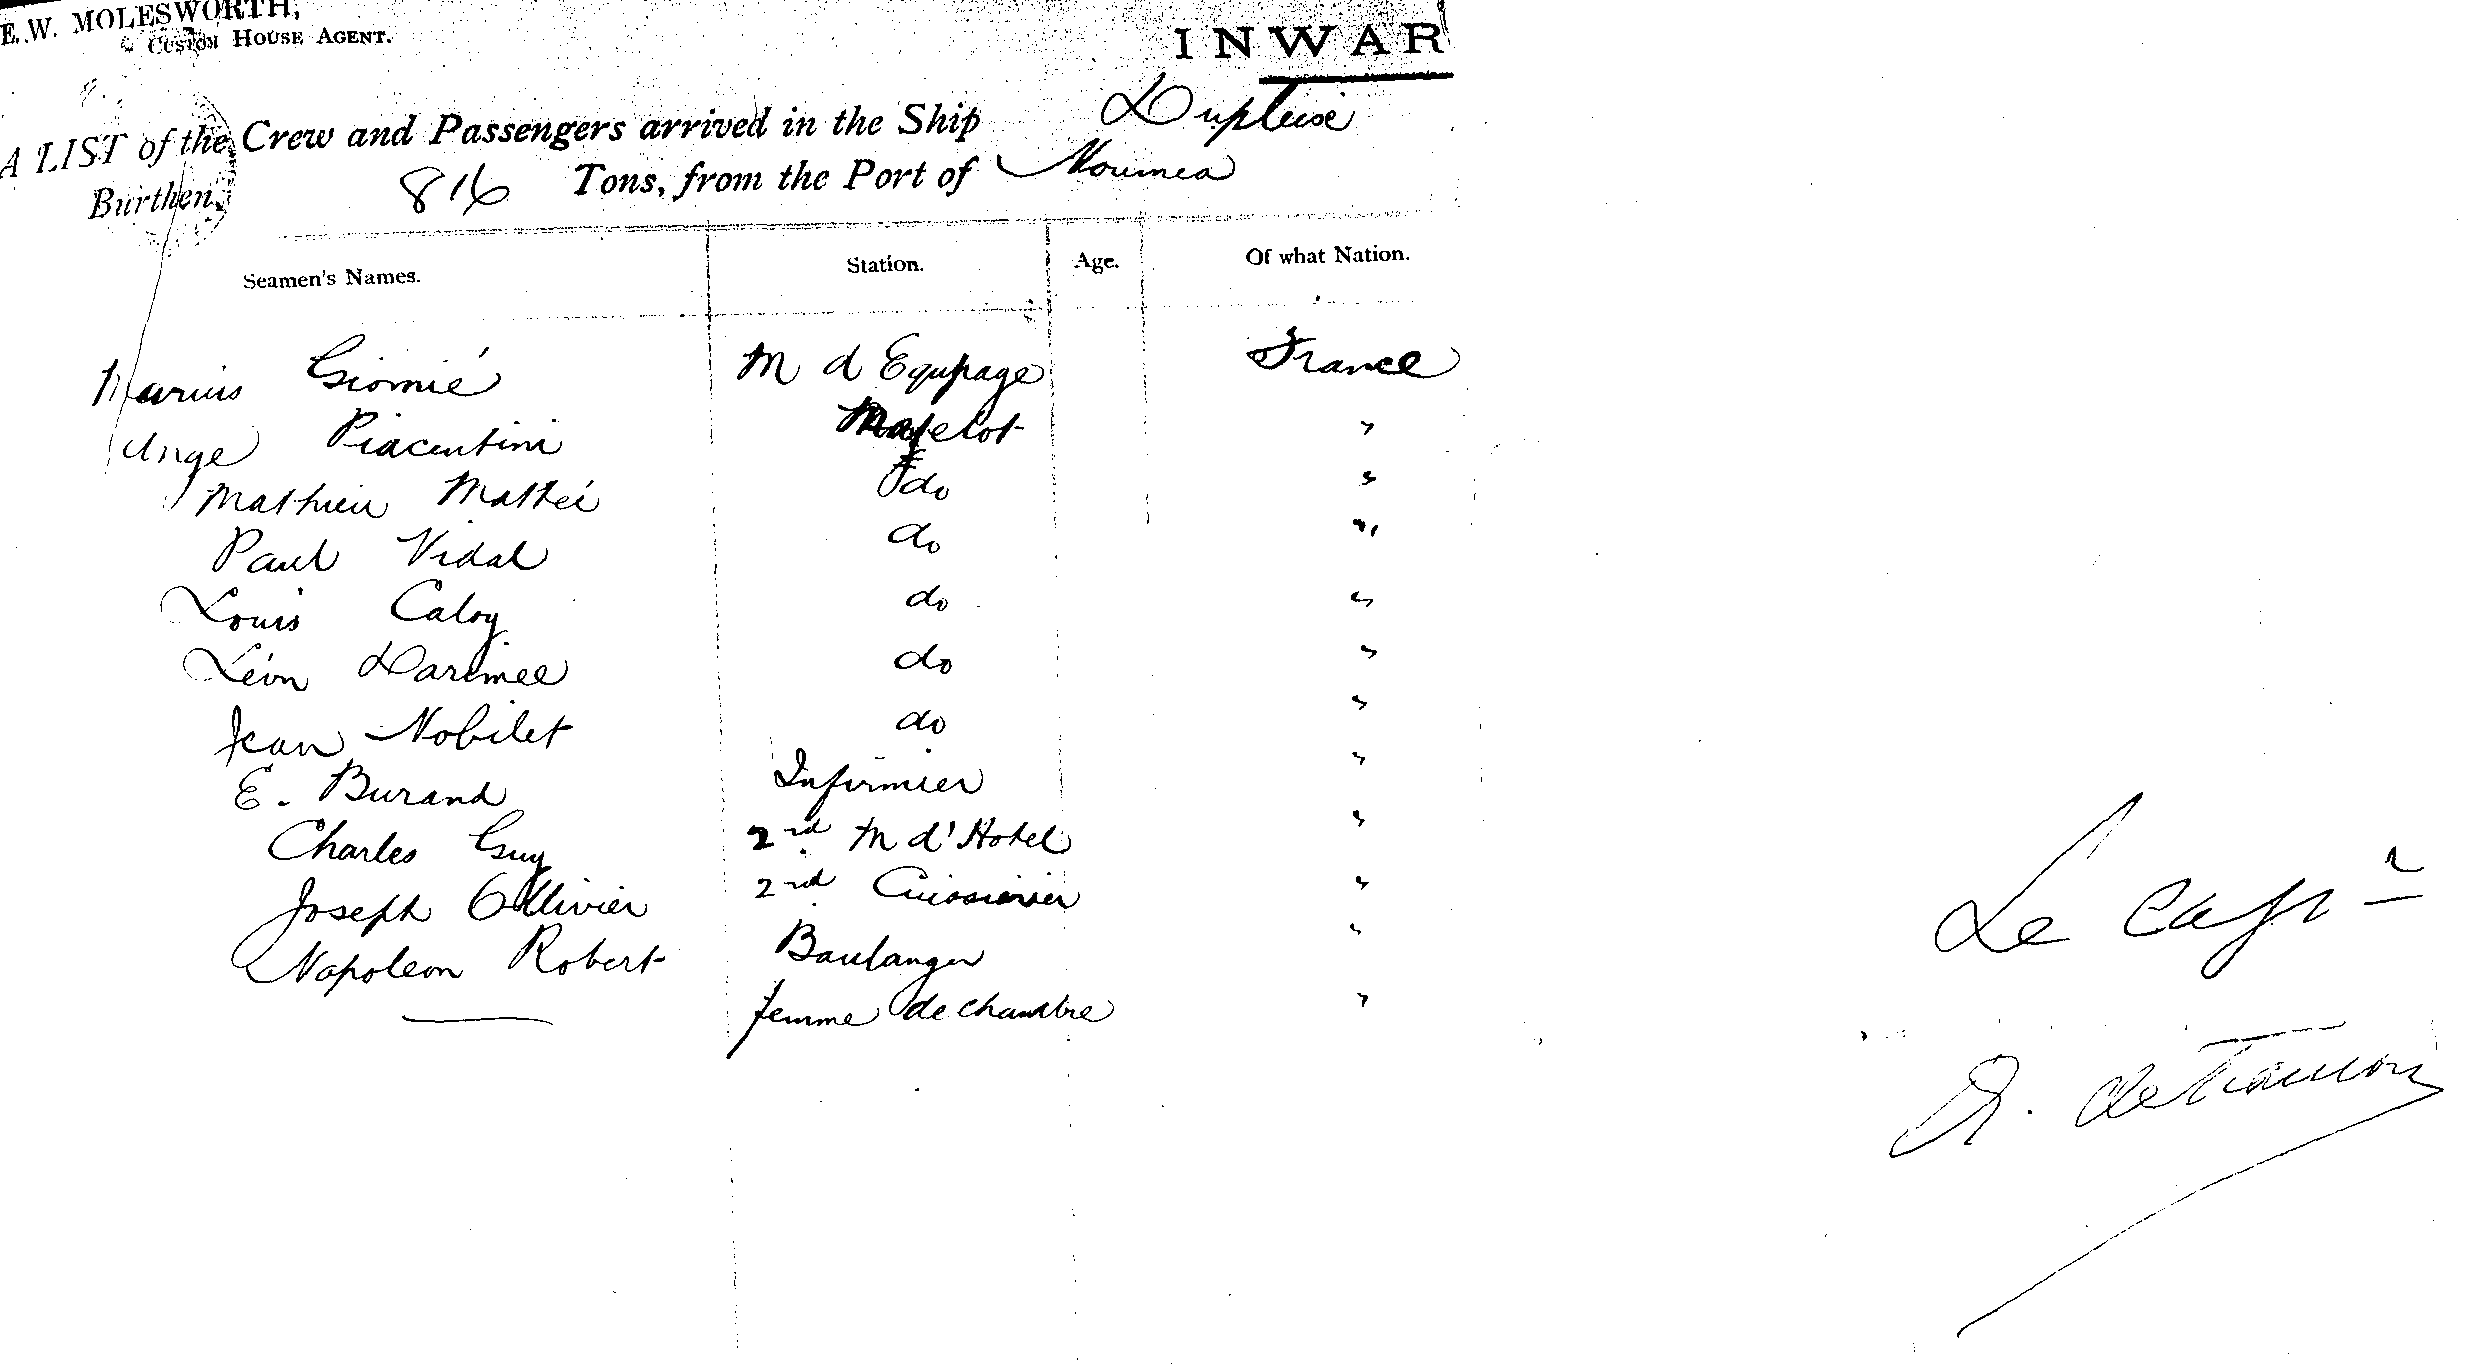 E. W. MOLESWORTH,
CUSTOM HOUSE AGENT.
INWAR
A LIST of the Crew and Passengers arrived in the Ship Dupleix
Burthen, 816 Tons, from the Port of Noumea
Seamen's Names. Station. Age. Of what Nation.
Marius Giomié M d Equipage France
Ange Piacentini Matelot "
Mathieu Mattei do "
Paul Vidal do "
Louis Caloy do "
Léon Darimee do "
Jean Nobilet do "
E. Burand Infirmier "
Charles Guy 2nd M d'Hotel "
Joseph Ollivier 2nd "
Napoleon Robert Boulanger "
— femme de chambre "
Le capne